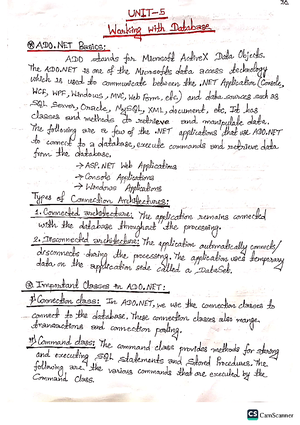 UNIT-5
Working with Database
ADO.NET Basics:
ADO stands for Microsoft ActiveX Data Objects.
The ADO.NET is one of the Microsofts data access technology
which is used to communicate between the .NET Application (Console,
WCF, WPF, Windows, MVC, Web Form, etc.) and data sources such as
SQL Server, Oracle, MySQL, XML, document, etc. It has
classes and methods to retrieve and manipulate data.
The following are a few of the .NET applications that use ADO.NET
to connect to a database, execute commands and retrieve data
from the database.
→ ASP.NET Web Applications
→ Console Applications
→ Windows Applications
Types of Connection Architectures:
1. Connected architecture: The application remains connected
with the database throughout the processing.
2. Disconnected architecture: The application automatically connects/
disconnects during the processing. The application uses temporary
data on the application side called a DataSet.
Important Classes in ADO.NET:
Connection Class: In ADO.NET, we use the connection classes to
connect to the database. These connection classes also manage
transactions and connection pooling.
Command Class: The Command class provides methods for storing
and executing SQL statements and Stored Procedures. The
following are the various commands that are executed by the
Command Class.
CS CamScanner